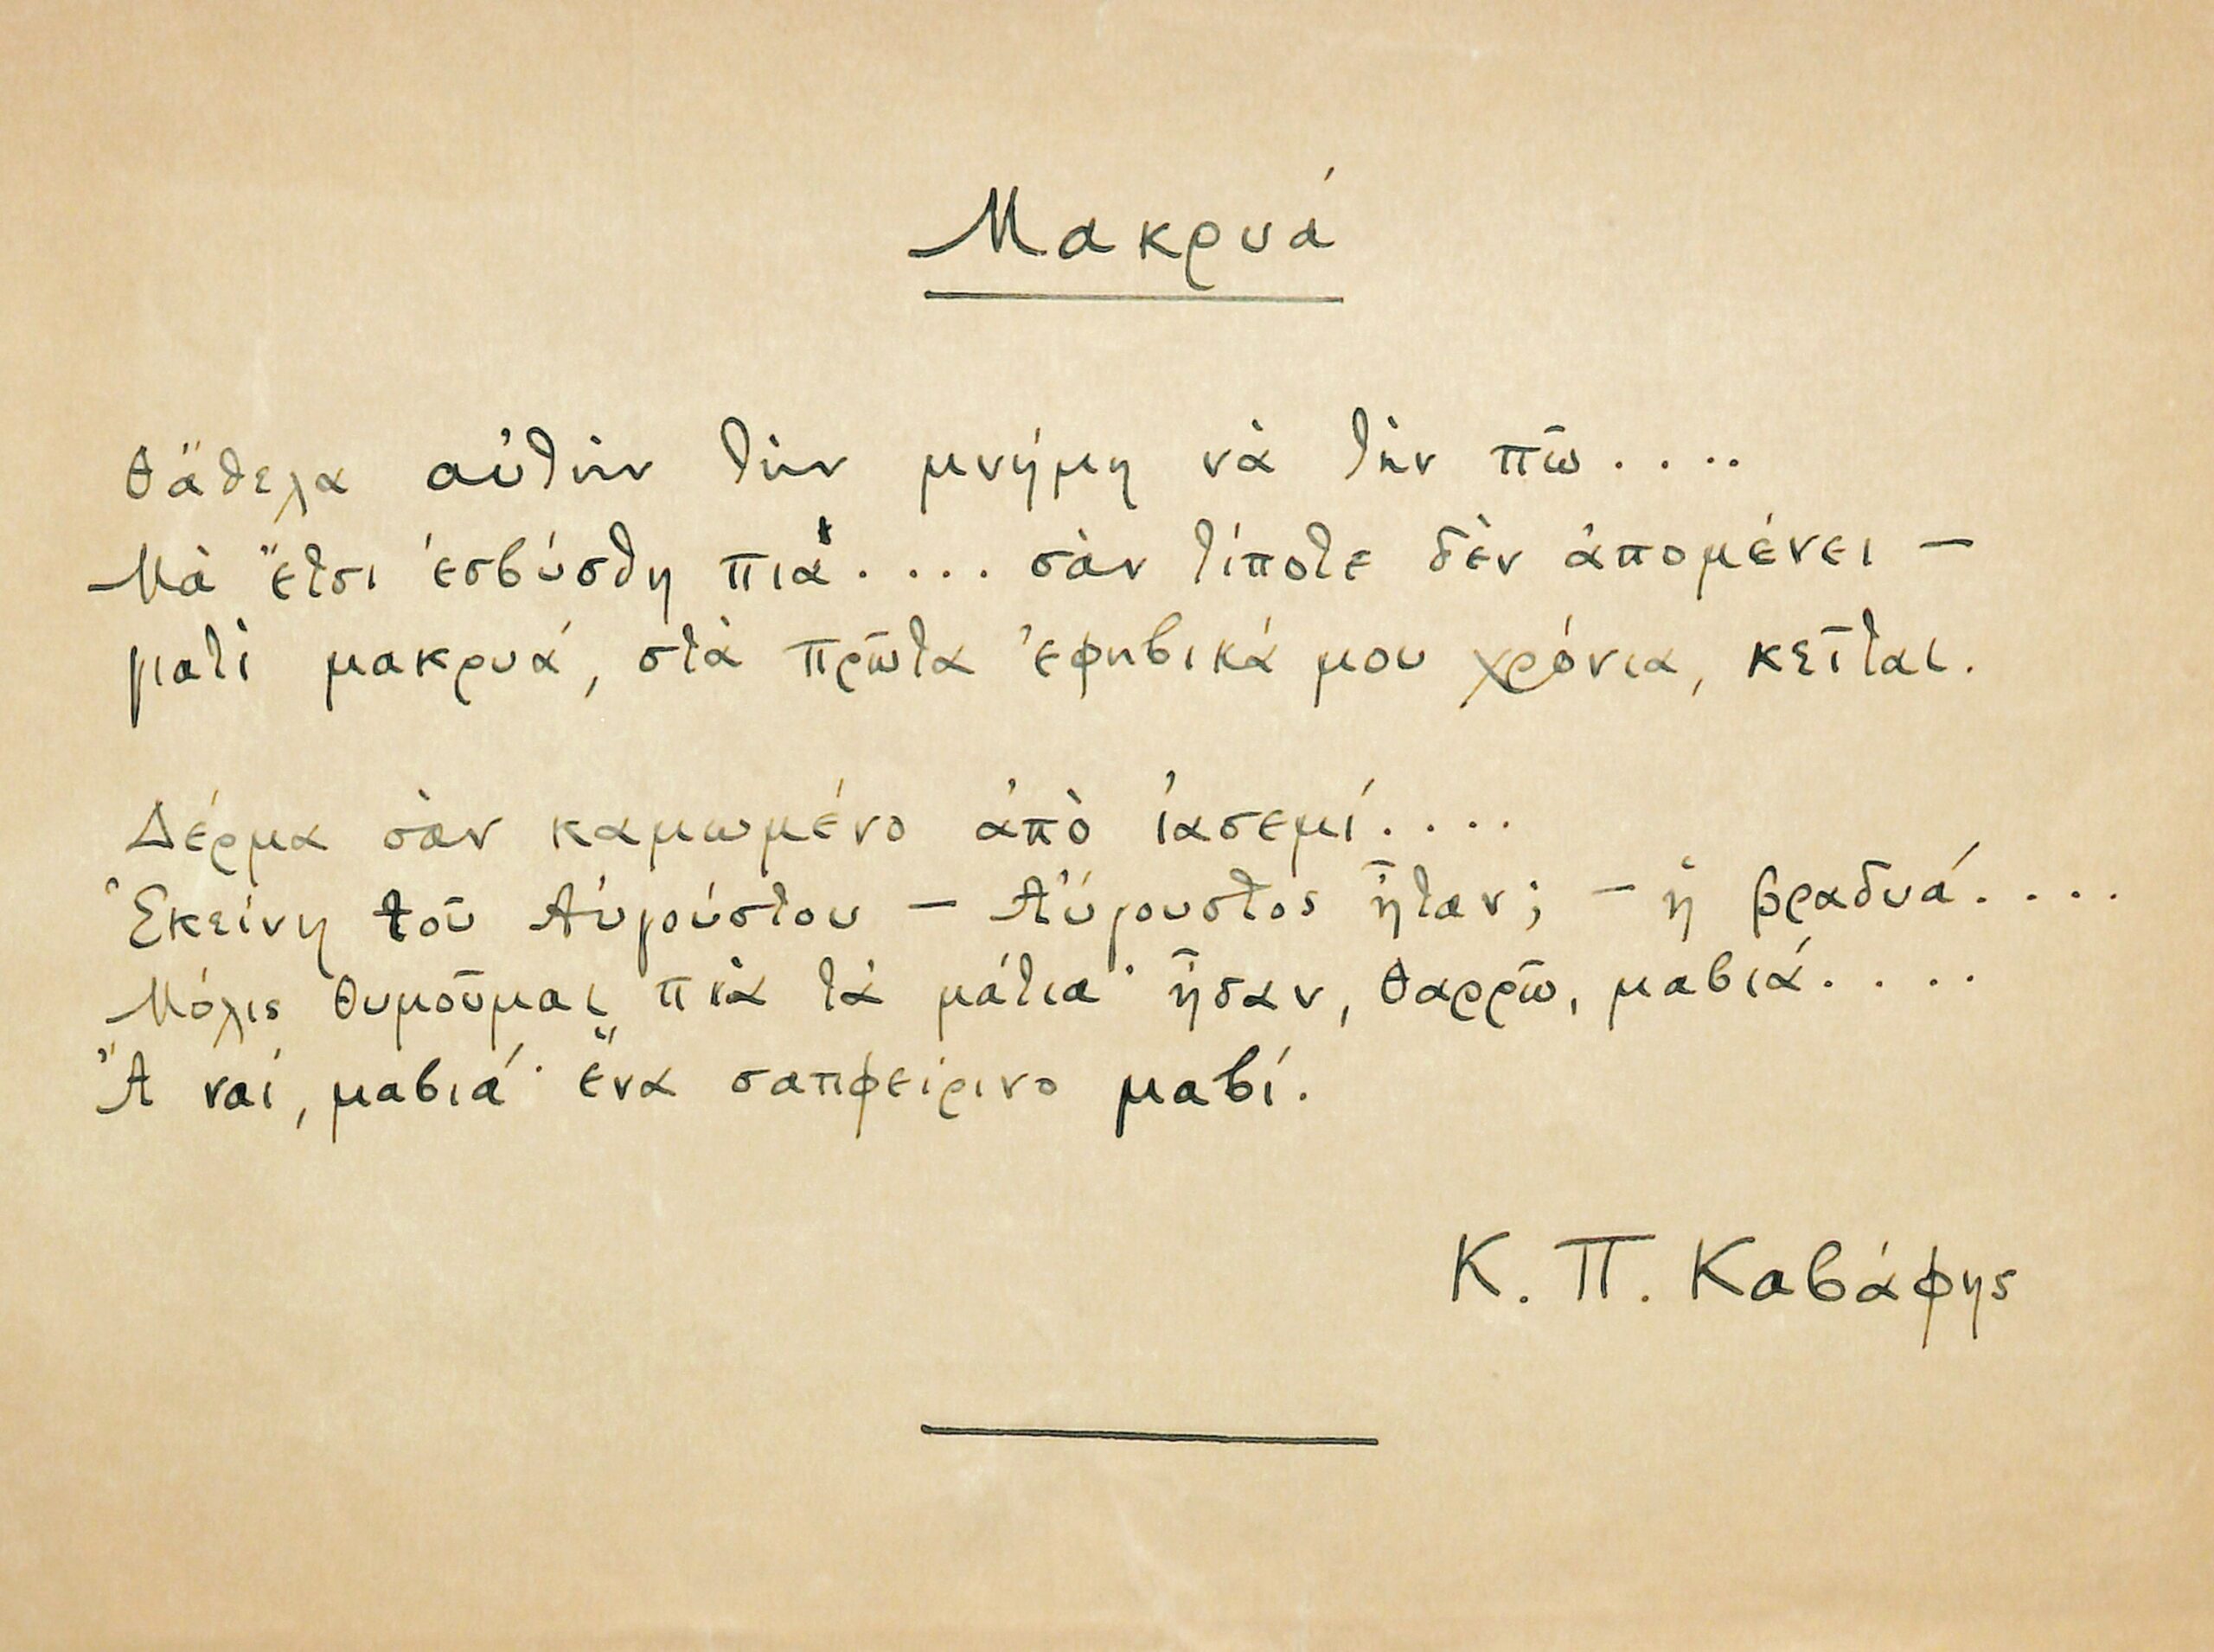 Μακρυά
Θἄθελα αὐτὴν τὴν μνήμη νὰ τὴν πῶ....
Μὰ ἔτσι ἐσβύσθη πιὰ.... σὰν τίποτε δὲν ἀπομένει —
γιατὶ μακρυά, στὰ πρῶτα ἐφηβικά μου χρόνια, κεῖται.
Δέρμα σὰν καμωμένο ἀπὸ ἰασεμί....
Ἐκείνη τοῦ Αὐγούστου — Αὔγουστος ἦταν; — ἡ βραδυά....
Μόλις θυμοῦμαι πιὰ τὰ μάτια· ἦσαν, θαρρῶ, μαβιά....
Ἄ ναί, μαβιά· ἕνα σαπφείρινο μαβί.
Κ. Π. Καβάφης